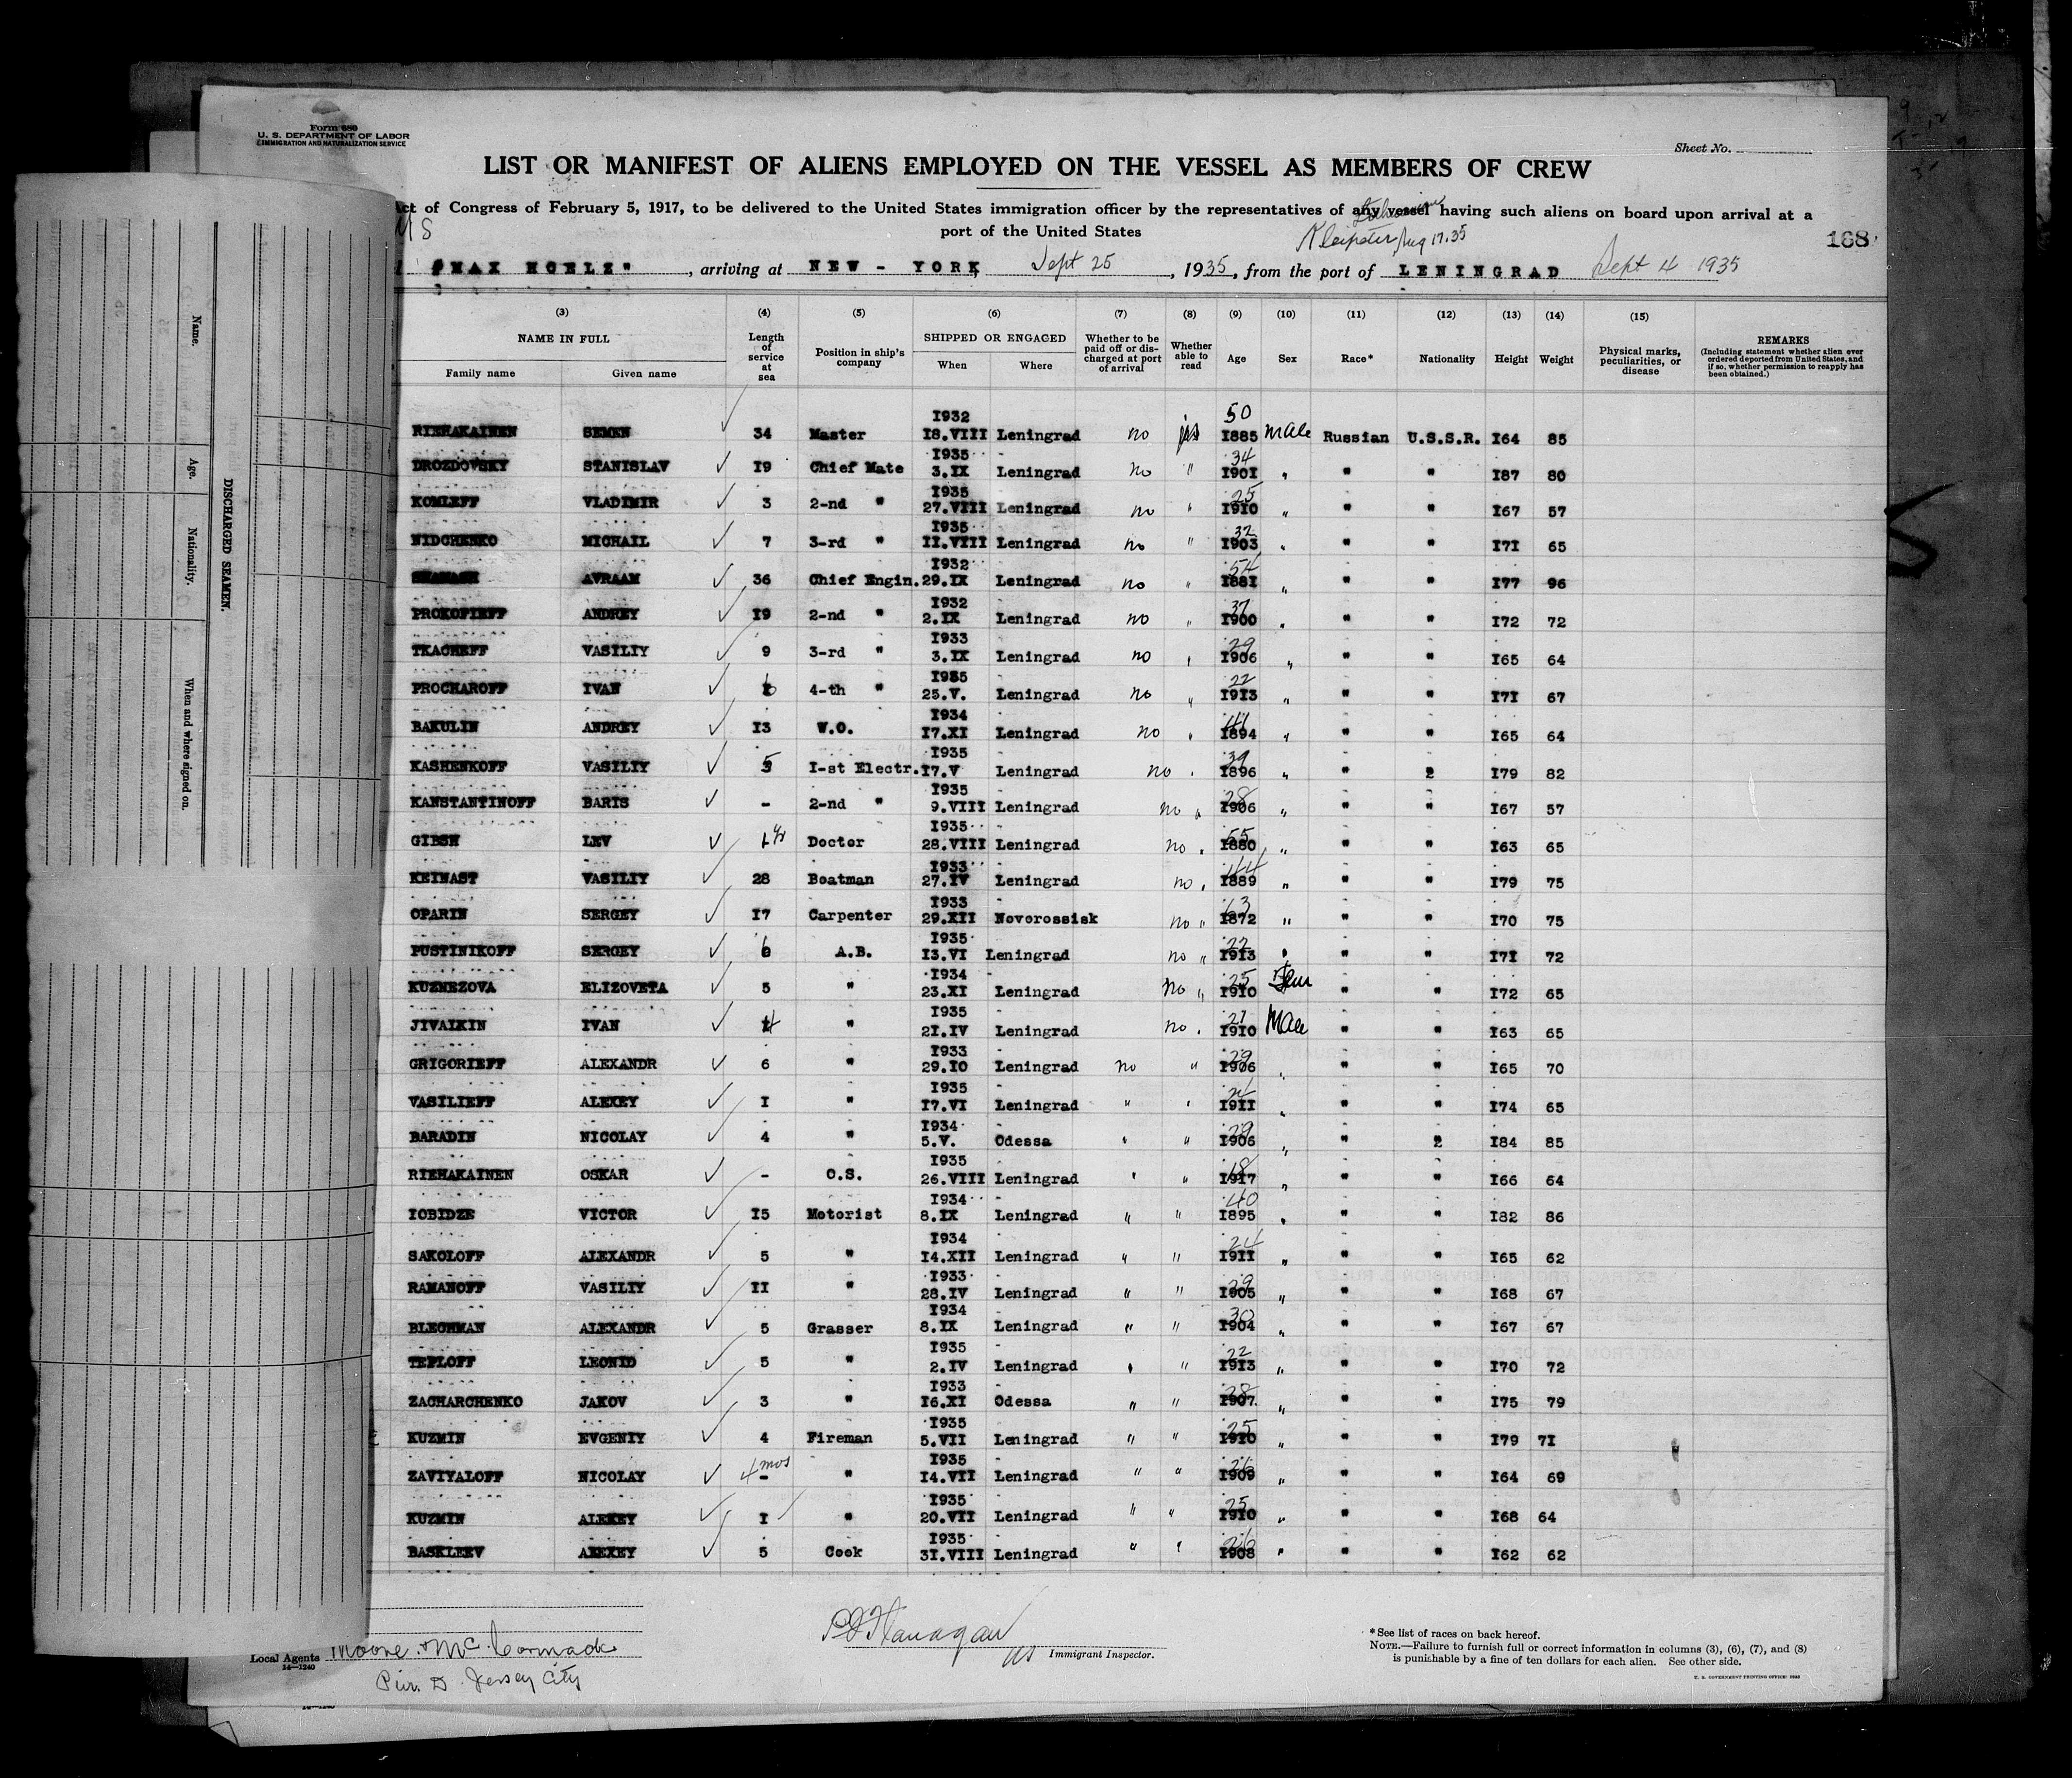 Form 680
U. S. DEPARTMENT OF LABOR
IMMIGRATION AND NATURALIZATION SERVICE
Sheet No.
LIST OR MANIFEST OF ALIENS EMPLOYED ON THE VESSEL AS MEMBERS OF CREW
Act of Congress of February 5, 1917, to be delivered to the United States immigration officer by the representatives of any vessel having such aliens on board upon arrival at a
port of the United States
MS
Aug 17.35
168
"MAX HOELZ", arriving at NEW - YORK, Sept 25, 1935, from the port of LENINGRAD Sept 4 1935
(3) (4) (5) (6) (7) (8) (9) (10) (11) (12) (13) (14) (15)
NAME IN FULL Length of service at sea Position in ship's company SHIPPED OR ENGAGED Whether to be paid off or discharged at port of arrival Whether able to read Age Sex Race* Nationality Height Weight Physical marks, peculiarities, or disease REMARKS
(Including statement whether alien ever ordered deported from United States, and if so, whether permission to reapply has been obtained.)
Family name Given name When Where
RIEHAKAINEN SEMEN 34 Master 1932 18.VIII Leningrad no yes 50 1885 Male Russian U.S.S.R. 164 85
DROZDOVSKY STANISLAV ✓ 19 Chief Mate 1935 3.IX Leningrad no " 34 1901 " " " 187 80
KOMLEFF VLADIMIR ✓ 3 2-nd " 1935 27.VIII Leningrad no " 25 1910 " " " 167 57
NIDCHENKO MICHAIL ✓ 7 3-rd " 1935 11.VIII Leningrad no " 32 1903 " " " 171 65
AVRAAM ✓ 36 Chief Engin. 1932 29.IX Leningrad no " 54 1881 " " " 177 96
PROKOFIEFF ANDREY ✓ 19 2-nd " 1932 2.IX Leningrad no " 1900 " " " 172 72
TKACHEFF VASILIY ✓ 9 3-rd " 1933 3.IX Leningrad no " 29 1906 " " " 165 64
PROCHAROFF IVAN ✓ 4-th " 1935 25.V. Leningrad no " 22 1913 " " " 171 67
BAKULIN ANDREY ✓ 13 W.O. 1934 17.XI Leningrad no " 41 1894 " " " 165 64
KASHENKOFF VASILIY ✓ 5 I-st Electr. 1935 17.V Leningrad no " 39 1896 " " 2 179 82
KANSTANTINOFF BARIS ✓ - 2-nd " 1935 9.VIII Leningrad no " 28 1906 " " " 167 57
GIBSH LEV ✓ 1 yr Doctor 1935 28.VIII Leningrad no " 55 1880 " " " 163 65
KEINAST VASILIY ✓ 28 Boatman 1933 27.IV Leningrad no " 44 1889 " " " 179 75
OPARIN SERGEY ✓ 17 Carpenter 1933 29.XII Novorossisk no " 63 1872 " " " 170 75
PUSTINIKOFF SERGEY ✓ 6 A.B. 1935 13.VI Leningrad no " 22 1913 " " " 171 72
KUZNEZOVA ELIZOVETA ✓ 5 " 1934 23.XI Leningrad No " 25 1910 Fem " " 172 65
JIVAIKIN IVAN ✓ 4 " 1935 21.IV Leningrad no " 1910 Male " " 163 65
GRIGORIEFF ALEXANDR ✓ 6 " 1933 29.10 Leningrad no " 29 1906 " " " 165 70
VASILIEFF ALEXEY ✓ 1 " 1935 17.VI Leningrad " " 1911 " " " 174 65
BARADIN NICOLAY ✓ 4 " 1934 5.V. Odessa " " 29 1906 " " 2 184 85
RIEHAKAINEN OSKAR ✓ - O.S. 1935 26.VIII Leningrad " " 18 1917 " " " 166 64
IOBIDZE VICTOR ✓ 15 Motorist 1934 8.IX Leningrad " " 40 1895 " " " 182 86
SAKOLOFF ALEXANDR ✓ 5 " 1934 14.XII Leningrad " " 24 1911 " " " 165 62
RAMANOFF VASILIY ✓ 11 " 1933 28.IV Leningrad " " 29 1905 " " " 168 67
BLECHMAN ALEXANDR ✓ 5 Grasser 1934 8.IX Leningrad " " 30 1904 " " " 167 67
TEPLOFF LEONID ✓ 5 " 1935 2.IV Leningrad " " 22 1913 " " " 170 72
ZACHARCHENKO JAKOV ✓ 3 " 1933 16.XI Odessa " " 28 1907 " " " 175 79
KUZMIN EVGENIY ✓ 4 Fireman 1935 5.VII Leningrad " " 25 1910 " " " 179 71
ZAVIYALOFF NICOLAY ✓ 4 mos - " 1935 14.VII Leningrad " " 26 1909 " " " 164 69
KUZMIN ALEXEY ✓ 1 " 1935 20.VII Leningrad " " 25 1910 " " " 168 64
BASKLEEV ALEXEY ✓ 5 Cook 1935 31.VIII Leningrad " " 26 1908 " " " 162 62
Local Agents Moore & McCormack
14—1240
Pier D Jersey City
PJ Flanagan
Immigrant Inspector.
* See list of races on back hereof.
NOTE.—Failure to furnish full or correct information in columns (3), (6), (7), and (8)
is punishable by a fine of ten dollars for each alien. See other side.
U. S. GOVERNMENT PRINTING OFFICE
DISCHARGED SEAMEN.
Name. Age. Nationality. When and where signed on.